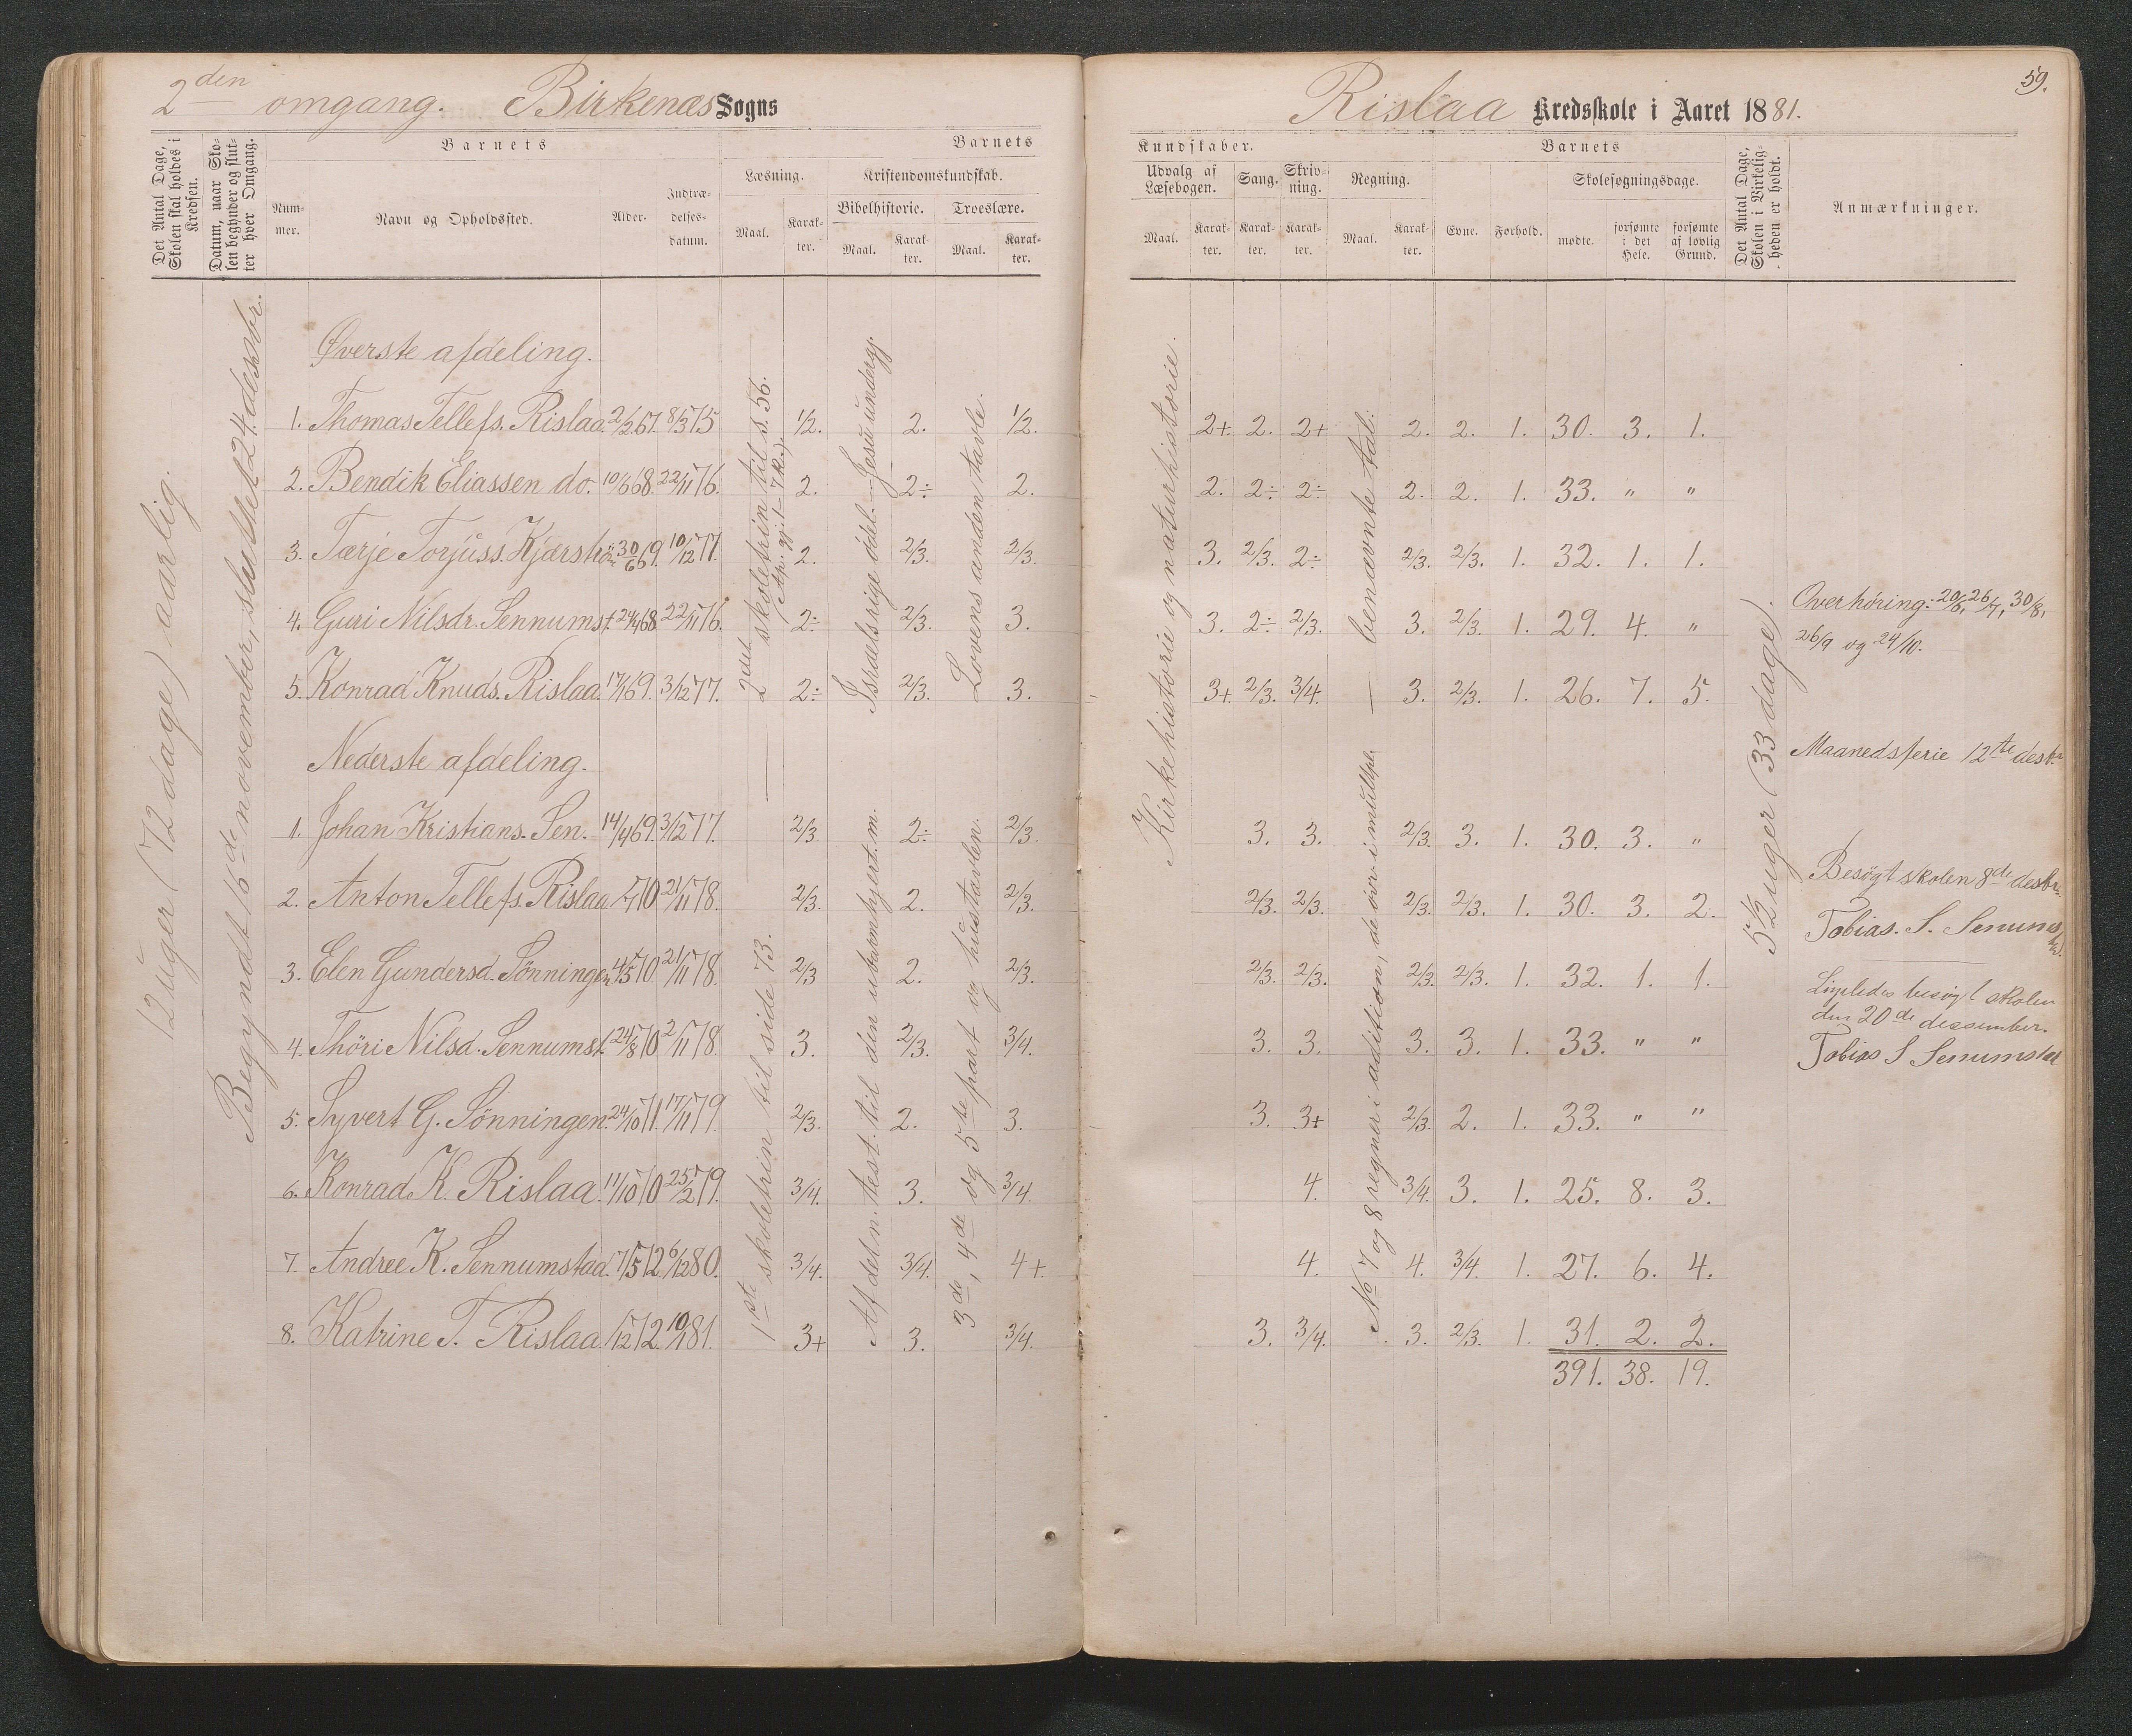 2den omgang. Birkenæs Sogns
Det Antal Dage, Skolen skal holdes i Kredsen.
Datum, naar Skolen begynder og slutter hver Omgang.
Barnets
Nummer.
Navn og Opholdssted.
Alder.
Indtrædelsesdatum.
Barnets
Læsning.
Maal.
Karakter.
Kristendomskundskab.
Bibelhistorie.
Maal.
Karakter.
Troeslære.
Maal.
Karakter.
12 uger (72 dage) aarlig.
Begyndt 16de november, sluttet 24. desbr.
Øverste afdeling.
1. Thomas Tellefs. Rislaa. 2/2 67. 8/3 75 1/2. 2. 1/2.
2. Bendik Eliassen do. 10/6 68. 22/11 76. 2. 2÷ 2.
3. Tærje Torjuss. Kjærstrøm 30/6 69. 10/12 77. 2. 2/3. 2/3.
4. Guri Nilsdr. Sennumst. 24/4 68. 22/11 76. 2÷ 2/3. 3.
5. Konrad Knuds. Rislaa. 17/1 69. 3/12 77. 2÷ 2/3. 3.
2det skoletrin til s. 56.
Israelsrige ödel. – Jesu undergj.
Lovens anden tavle.
Nederste afdeling.
1. Johan Kristians. Sen. 14/4 69. 3/12 77. 2/3 2÷ 2/3.
2. Anton Tellefs. Rislaa 1/7 70 21/11 78. 2/3. 2. 2/3.
3. Elen Gundersd. Sønningen 4/5 70 21/11 78. 2/3 2. 2/3.
4. Thöri Nilsd. Sennumst. 24/8 70 2/11 78. 3. 2/3. 3/4.
5. Syvert G. Sönningen. 24/10 71. 17/11 79. 2/3. 2. 3.
6. Konrad K. Rislaa. 11/10 70 25/2 79. 3/4. 3. 3/4.
7. Andree K. Sennumstad. 7/5 72. 6/12 80. 3/4. 3/4. 4+.
8. Katrine T. Rislaa. 1/12 72. 10/1 81. 3+ 3. 3/4.
1ste skoletrin til side 73.
Af deln. test. til den ubarmhjert. m.
3de, 4de og 5te part og hustavlen.
59.
Rislaa Kredsskole i Aaret 1881.
Kundskaber.
Udvalg af Læsebogen.
Maal.
Karakter.
Sang.
Karakter.
Skrivning.
Karakter.
Regning.
Maal.
Karakter.
Barnets
Evne.
Forhold.
Skolesøgningsdage.
mødte.
forsømte i det Hele.
forsømte af lovlig Grund.
Det Antal Dage, Skolen i Virkeligheden er holdt.
Anmærkninger.
Kirkehistorie og naturhistorie.
benævnte tal.
2+. 2. 2+ 2. 2. 1. 30. 3. 1.
2. 2÷ 2÷ 2. 2. 1. 33. " "
3. 2/3. 2÷ 2/3. 2/3. 1. 32. 1. 1.
3. 2÷ 2/3. 3. 2/3. 1. 29. 4. "
3+. 2/3. 3/4. 3. 2/3. 1. 26. 7. 5.
No 7 og 8 regner i adition, de övr. i multipl.
3. 3. 2/3. 3. 1. 30. 3. "
2/3. 2/3. 2/3. 2/3. 1. 30. 3. 2.
2/3. 2/3. 2/3. 2/3. 1. 32. 1. 1.
3. 3. 3. 3. 1. 33. " "
3. 3+ 2/3. 2. 1. 33. " "
4. 3/4. 3. 1. 25. 8. 3.
4. 4. 3/4. 1. 27. 6. 4.
3. 3/4. 3. 2/3. 1. 31. 2. 2.
391. 38. 19.
5 1/2 uger (33 dage).
Overhöring: 20/6, 26/7, 30/8,
26/9 og 24/10.
Maanedsferie 12te desbr.
Besögt skolen 8de desbr.
Tobias. S. Senumstad.
Ligeledes besögt skolen
den 20de dessember.
Tobias S Senumstad